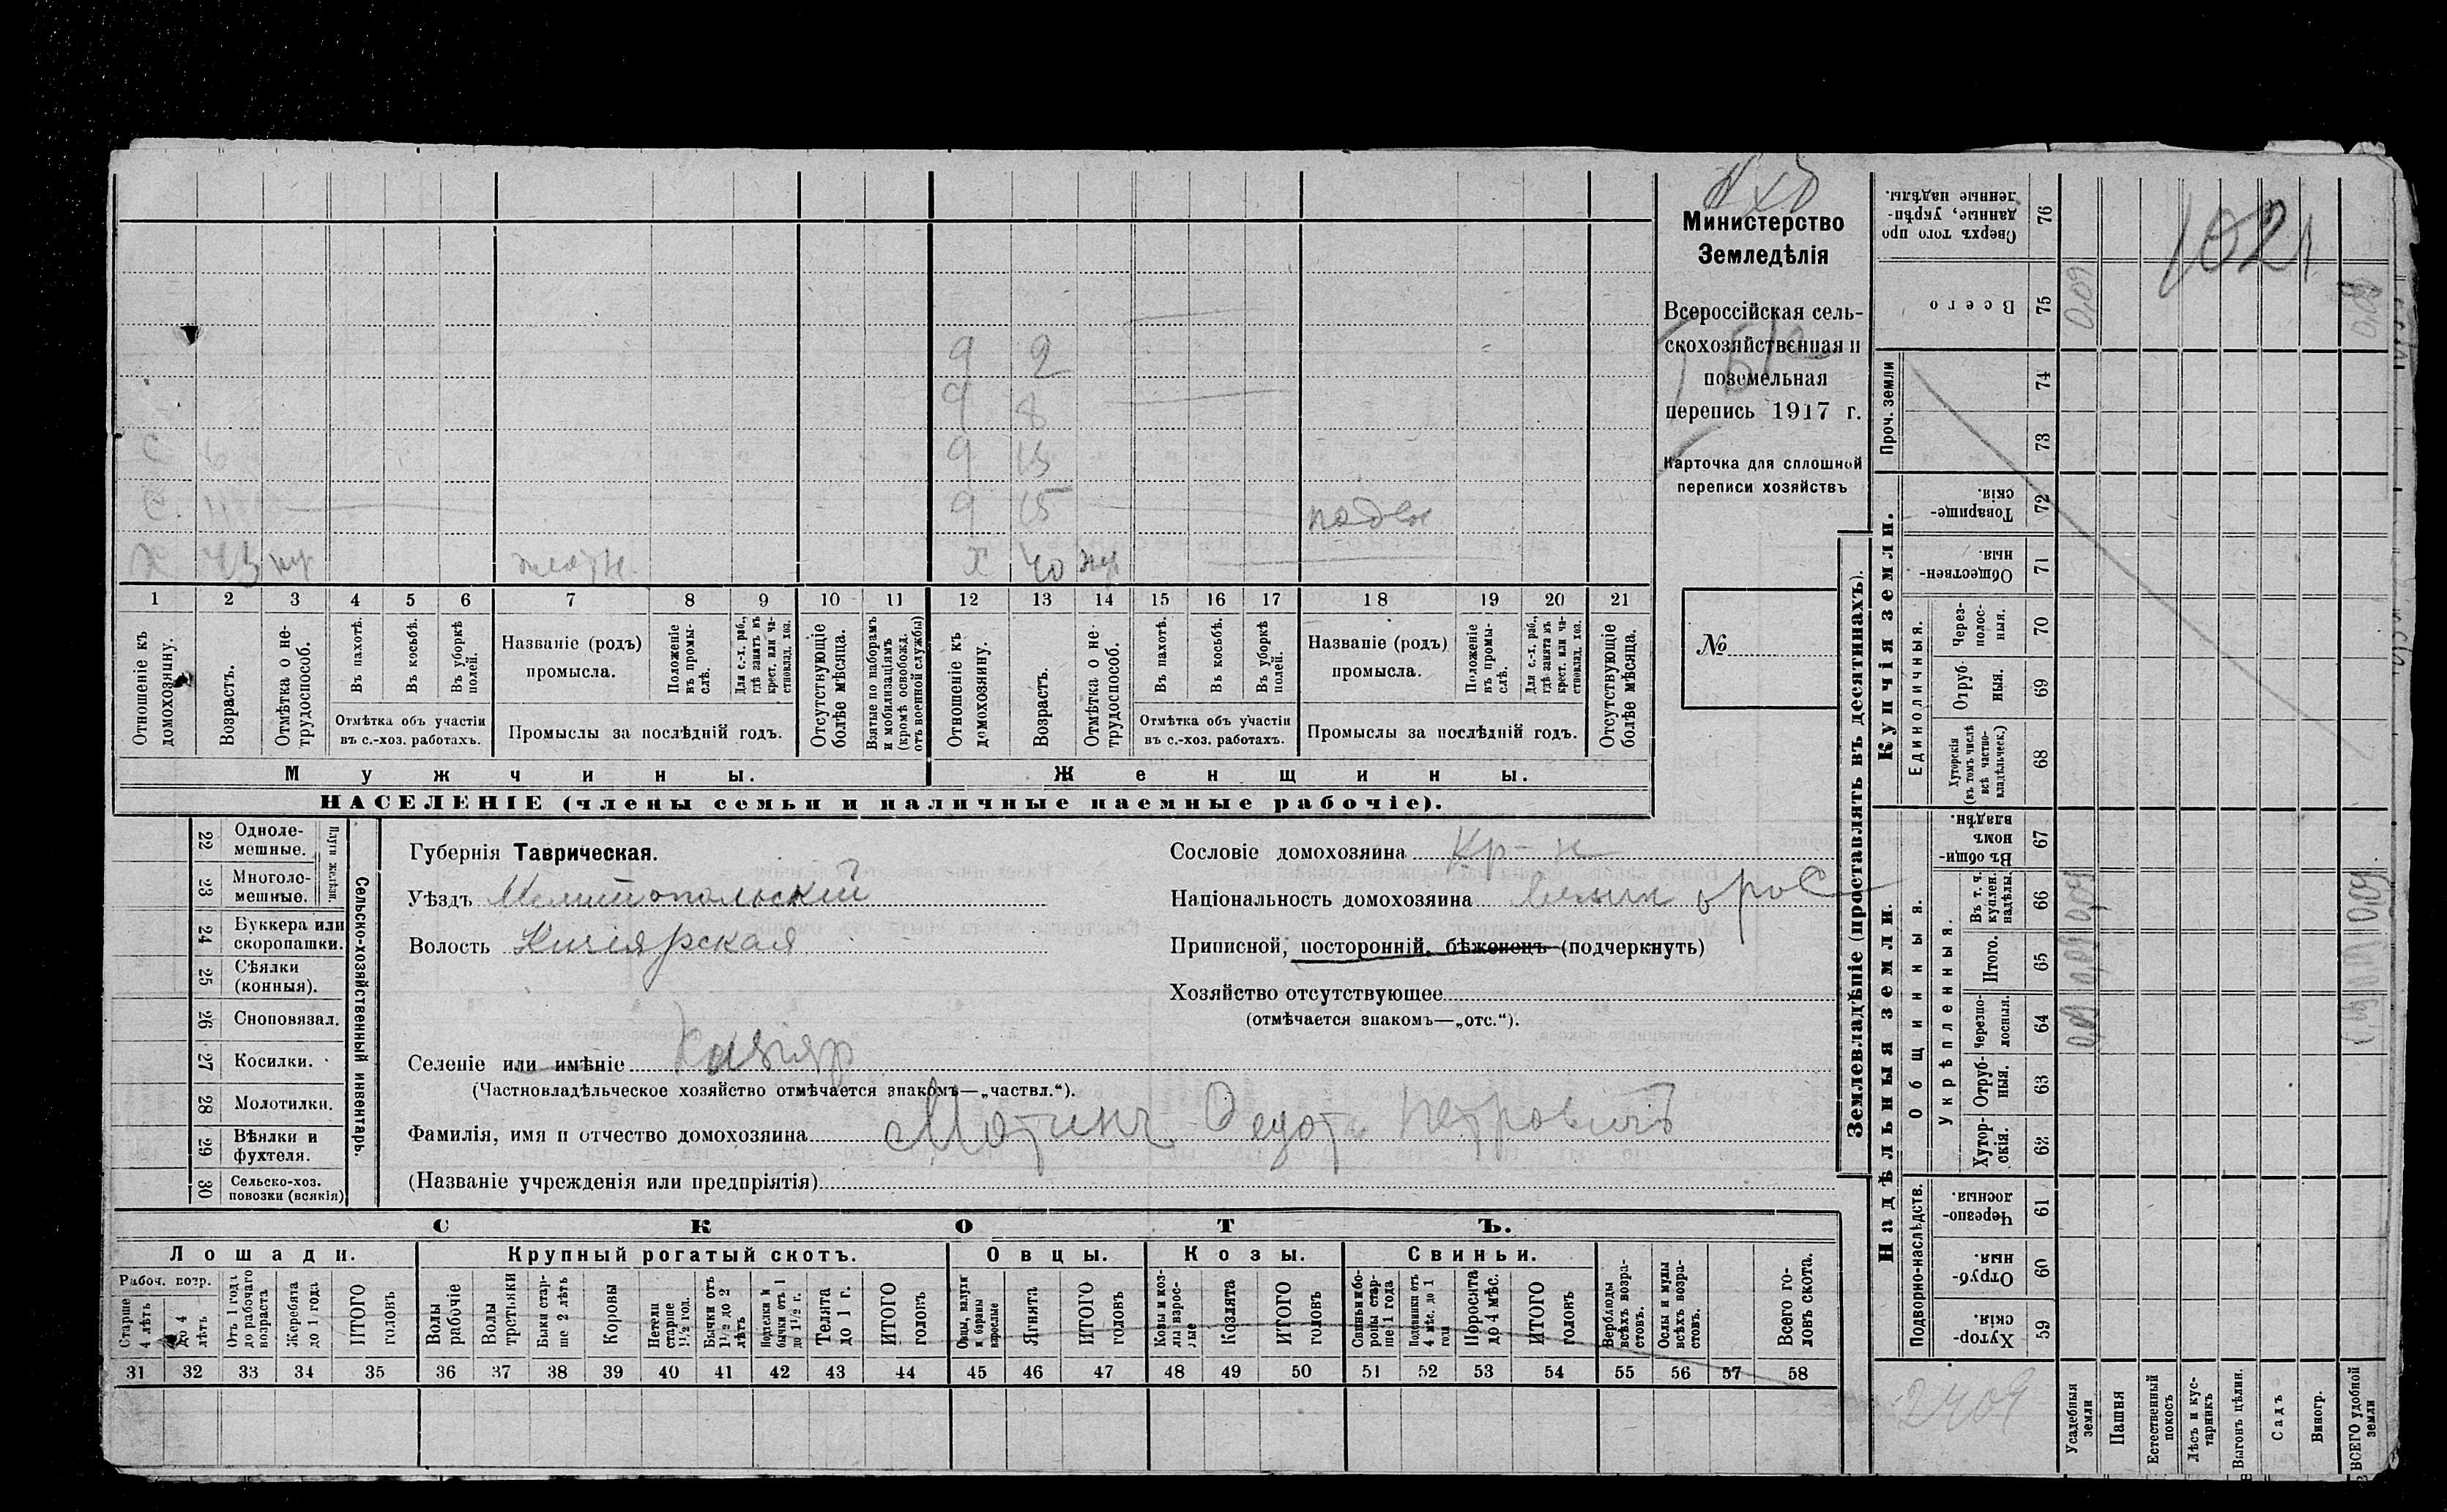 Министерство
Земледѣлія
Всероссійская сель-
скохозяйственная и
поземельная
перепись 1917 г.
Карточка для сплошной
переписи хозяйствъ
№
9 2
9 8
С 6 9 13
С. 11 9 15
Х 43 Х 40
1 2 3 4 5 6 7 8 9 10 11 12 13 14 15 16 17 18 19 20 21
Отношеніе къ домохозяину.
Возрастъ.
Отмѣтка о не-трудоспособ.
Въ пахотѣ.
Въ косьбѣ.
Въ уборкѣ полей.
Отмѣтка объ участіи
въ с.-хоз. работахъ.
Названіе (родъ)
промысла.
Положеніе въ промы-слѣ.
Для с.-х. раб., гдѣ занятъ въ крест. или ча-стновлад. хоз.
Промыслы за послѣдній годъ.
Отсутствующіе болѣе мѣсяца.
Взятые по наборамъ и мобилизаціямъ (кромѣ освобожд. отъ военной службы)
Отношеніе къ домохозяину.
Возрастъ.
Отмѣтка о не-трудоспособ.
Въ пахотѣ.
Въ косьбѣ.
Въ уборкѣ полей.
Отмѣтка объ участіи
въ с.-хоз. работахъ.
Названіе (родъ)
промысла.
Положеніе въ промы-слѣ.
Для с.-х. раб., гдѣ занятъ въ крест. или ча-стновлад. хоз.
Промыслы за послѣдній годъ.
Отсутствующіе болѣе мѣсяца.
Мужчины. Женщины.
НАСЕЛЕНІЕ (члены семьи и наличные наемные рабочіе).
22 Одноле-мешные.
23 Многоле-мешные.
Плуги желѣзн.
24 Буккера или скоропашки.
25 Сѣялки (конныя).
26 Сноповязал.
27 Косилки.
28 Молотилки.
29 Вѣялки и фухтеля.
30 Сельско-хоз. повозки (всякія)
Сельско-хозяйственный инвентарь.
Губернія Таврическая.
Уѣздъ Мелитопольскій
Волость Кизіярская
Селеніе или имѣніе Кизіяр
(Частновладѣльческое хозяйство отмѣчается знакомъ—„частвл.“).
Фамилія, имя и отчество домохозяина Мотинъ Федотъ Петровичъ
(Названіе учрежденія или предпріятія)
Сословіе домохозяина Кр-н
Національность домохозяина Великорос
Приписной, посторонній, бѣженецъ (подчеркнуть)
Хозяйство отсутствующее
(отмѣчается знакомъ—„отс.“).
СКОТЪ.
Лошади. Крупный рогатый скотъ. Овцы. Козы. Свиньи.
Рабоч. возр.
Старше 4 лѣтъ
До 4 лѣтъ
Отъ 1 года до рабочаго возраста
Жеребята до 1 года
ИТОГО головъ
Волы рабочіе
Волы третьяки
Быки стар-ше 2 лѣтъ
Коровы
Нетели старше 1½ год.
Бычки отъ 1½ до 2 лѣтъ
Подтелки и бычки отъ 1 до 1½ г.
Телята до 1 г.
ИТОГО головъ
Овцы, валухи и бараны взрослые
Ягнята
ИТОГО головъ
Козы и коз-лы взрос-лые
Козлята
ИТОГО головъ
Свиньи и бо-ровы стар-ше 1 года
Подсвинки отъ 4 мѣс. до 1 года
Поросята до 4 мѣс.
ИТОГО головъ
Верблюды всѣхъ возра-стовъ.
Ослы и мулы всѣхъ возра-стовъ.
Всего го-ловъ скота.
31 32 33 34 35 36 37 38 39 40 41 42 43 44 45 46 47 48 49 50 51 52 53 54 55 56 57 58
Землевладѣніе (проставлять въ десятинахъ).
Сверхъ того про-данные, укрѣп-ленные надѣлы. 76
Всего 75 0,09
Проч. земли 74 73
Купчія земли.
Товарище-скія. 72
Обществен-ныя. 71
Единоличныя.
Через-полос-ныя. 70
Отруб-ныя. 69
Хуторскія (въ томъ числѣ всѣ частно-владѣльческ.) 68
Надѣльныя земли.
Общинныя.
Въ общи-номъ владѣн. 67
Укрѣпленныя.
Въ т. ч. куплен. надѣлы. 66 0,09
Итого. 65 0,09
Черезпо-лосныя. 64 0,09
Отруб-ныя. 63
Хутор-скія. 62
Подворно-наслѣдств.
Черезпо-лосныя. 61
Отруб-ныя. 60
Хутор-скія. 59
1021
0,09
0,09
2409
Усадебныя земли
Пашня
Естественный покосъ
Лѣсъ и кус-тарникъ
Выгонъ цѣлин.
Садъ
Виногр.
ВСЕГО удобной земли